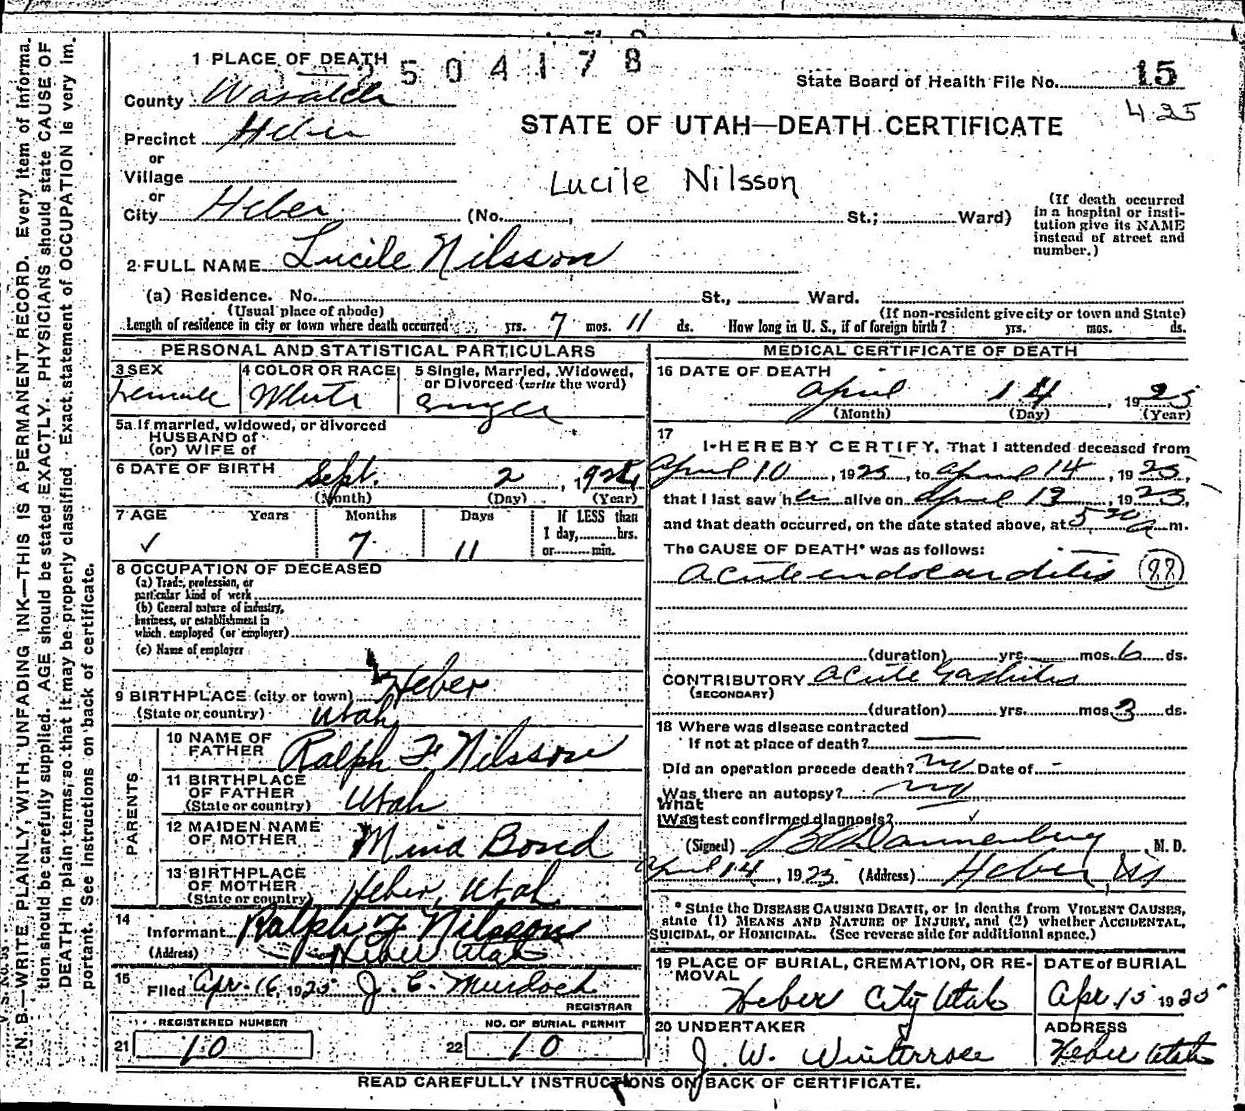 1 PLACE OF DEATH
2504178
State Board of Health File No. 15
425
County Wasatch
Precinct Heber
STATE OF UTAH—DEATH CERTIFICATE
or
Village
Lucile Nilsson
or
City Heber (No. , St.; Ward)
(If death occurred in a hospital or insti-
tution give its NAME
instead of street and
number.)
2 FULL NAME Lucile Nilsson
(a) Residence. No. St., Ward.
(Usual place of abode) (If non-resident give city or town and State)
Length of residence in city or town where death occurred yrs. 7 mos. 11 ds. How long in U. S., if of foreign birth? yrs. mos. ds.
PERSONAL AND STATISTICAL PARTICULARS
3 SEX
Female
4 COLOR OR RACE
White
5 Single, Married, Widowed,
or Divorced (write the word)
Single
5a If married, widowed, or divorced
HUSBAND of
(or) WIFE of
6 DATE OF BIRTH Sept. 2, 1924
(Month) (Day) (Year)
7 AGE Years Months Days If LESS than
1 day, hrs.
or min.
✓ 7 11
8 OCCUPATION OF DECEASED
(a) Trade, profession, or
particular kind of work
(b) General nature of industry,
business, or establishment in
which employed (or employer)
(c) Name of employer
9 BIRTHPLACE (city or town) Heber
(State or country) Utah
PARENTS
10 NAME OF
FATHER Ralph F. Nilsson
11 BIRTHPLACE
OF FATHER
(State or country) Utah
12 MAIDEN NAME
OF MOTHER Mina Bond
13 BIRTHPLACE
OF MOTHER
(State or country) Heber, Utah
14
Informant Ralph F Nilsson
(Address) Heber Utah
15
Filed Apr. 16, 1925 J. C. Murdock
REGISTRAR
REGISTERED NUMBER
21 10
NO. OF BURIAL PERMIT
22 10
MEDICAL CERTIFICATE OF DEATH
16 DATE OF DEATH
April 14, 1925
(Month) (Day) (Year)
17
I HEREBY CERTIFY, That I attended deceased from
April 10, 1925, to April 14, 1925,
that I last saw her alive on April 13, 1925,
and that death occurred, on the date stated above, at 5 30 a m.
The CAUSE OF DEATH* was as follows:
Acute endocarditis
(duration) yrs. mos. 6 ds.
CONTRIBUTORY Acute Gastritis
(SECONDARY)
(duration) yrs. mos. 3 ds.
18 Where was disease contracted
If not at place of death?
Did an operation precede death? no Date of -
Was there an autopsy? no
What
Was test confirmed diagnosis?
(Signed) Dannenberg, M. D.
April 14, 1925 (Address) Heber,
* State the DISEASE CAUSING DEATH, or in deaths from VIOLENT CAUSES,
state (1) MEANS AND NATURE OF INJURY, and (2) whether ACCIDENTAL,
SUICIDAL, OR HOMICIDAL. (See reverse side for additional space.)
19 PLACE OF BURIAL, CREMATION, OR RE-
MOVAL
Heber City Utah
DATE of BURIAL
Apr 15 1925
20 UNDERTAKER
J. W. Winterrose
ADDRESS
Heber Utah
READ CAREFULLY INSTRUCTIONS ON BACK OF CERTIFICATE.
N. B.—WRITE PLAINLY, WITH UNFADING INK—THIS IS A PERMANENT RECORD. Every item of informa-
tion should be carefully supplied. AGE should be stated EXACTLY. PHYSICIANS should state CAUSE OF
DEATH in plain terms, so that it may be properly classified. Exact statement of OCCUPATION is very im-
portant. See instructions on back of certificate.